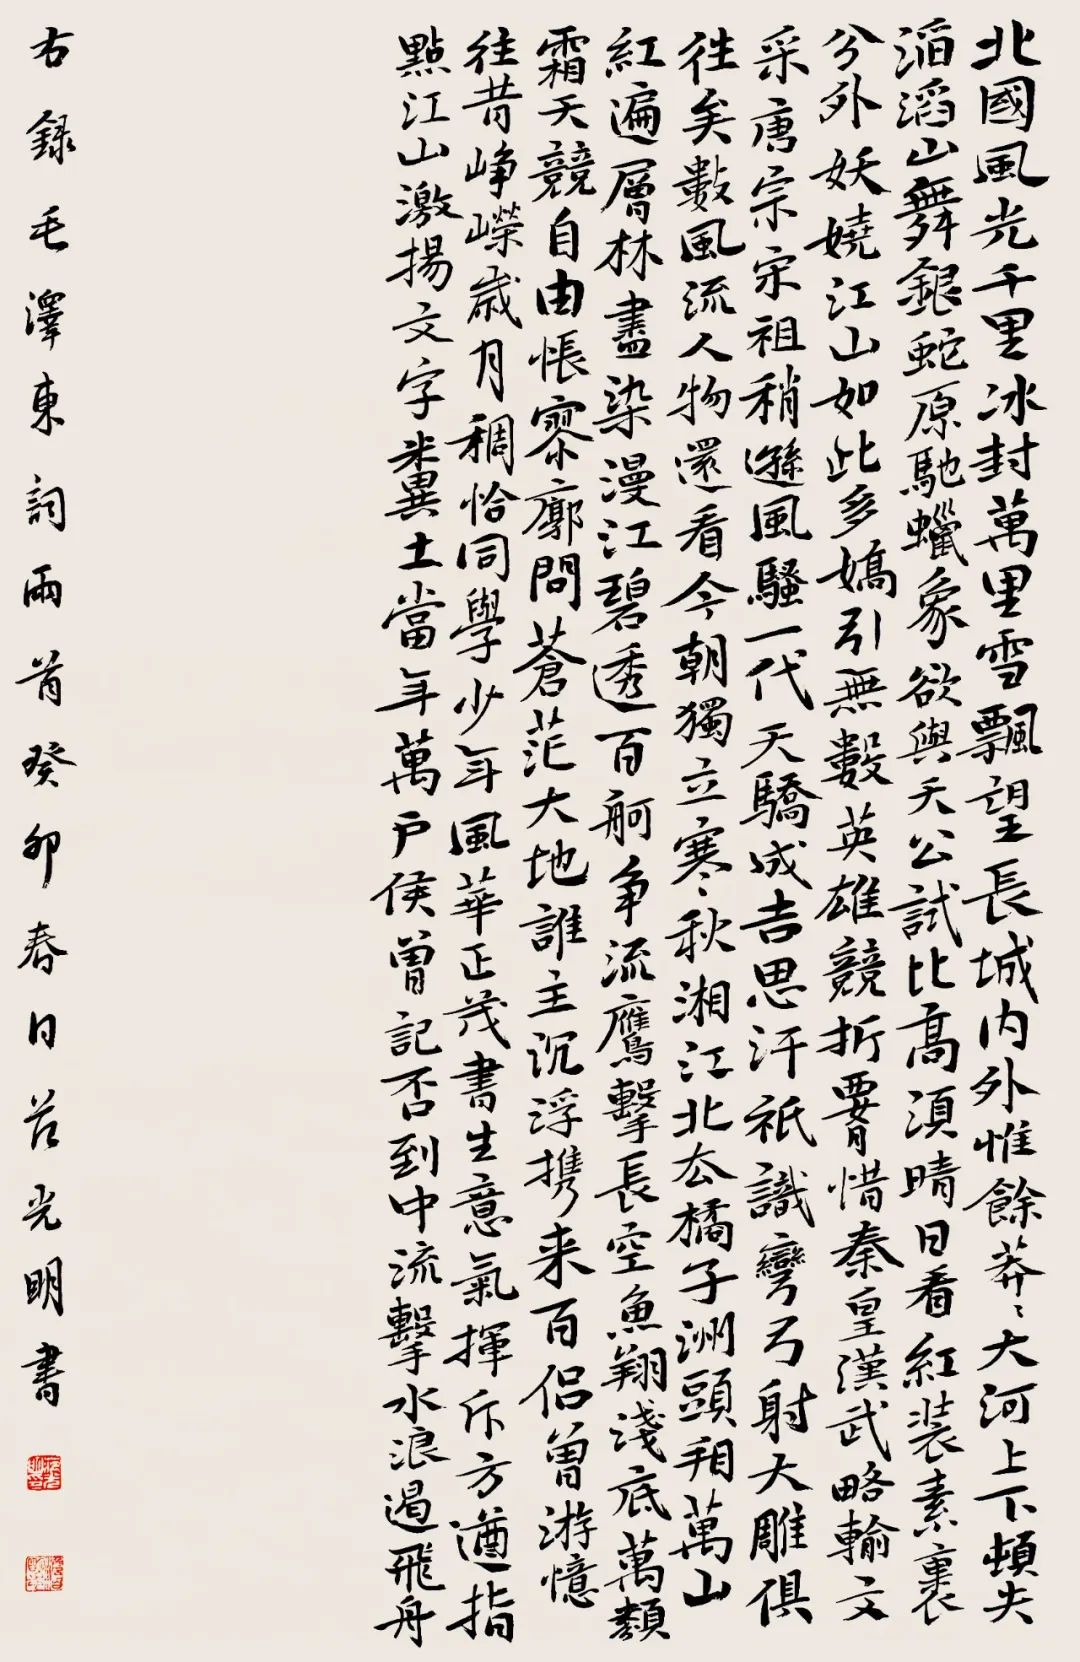 北國風光千里冰封萬里雪飄望長城内外惟餘莽〻大河上下頓失
滔滔山舞銀蛇原馳蠟象欲與天公試比高須晴日看紅装素裹
兮外妖嬈江山如此多嬌引無數英雄競折腰惜秦皇漢武略輸文
采唐宗宋祖稍遜風騷一代天驕成吉思汗祇識彎弓射大雕俱
往矣數風流人物還看今朝獨立寒秋湘江北去橘子洲頭看萬山
紅遍層林盡染漫江碧透百舸争流鷹擊長空魚翔淺底萬類
霜天競自由悵寥廓問蒼茫大地誰主沉浮携来百侣曾游憶
往昔崢嶸歲月稠恰同學少年風華正茂書生意氣揮斥方遒指
點江山激揚文字糞土當年萬户侯曾記否到中流擊水浪遏飛舟
右録毛澤東詞兩首癸卯春日光明書